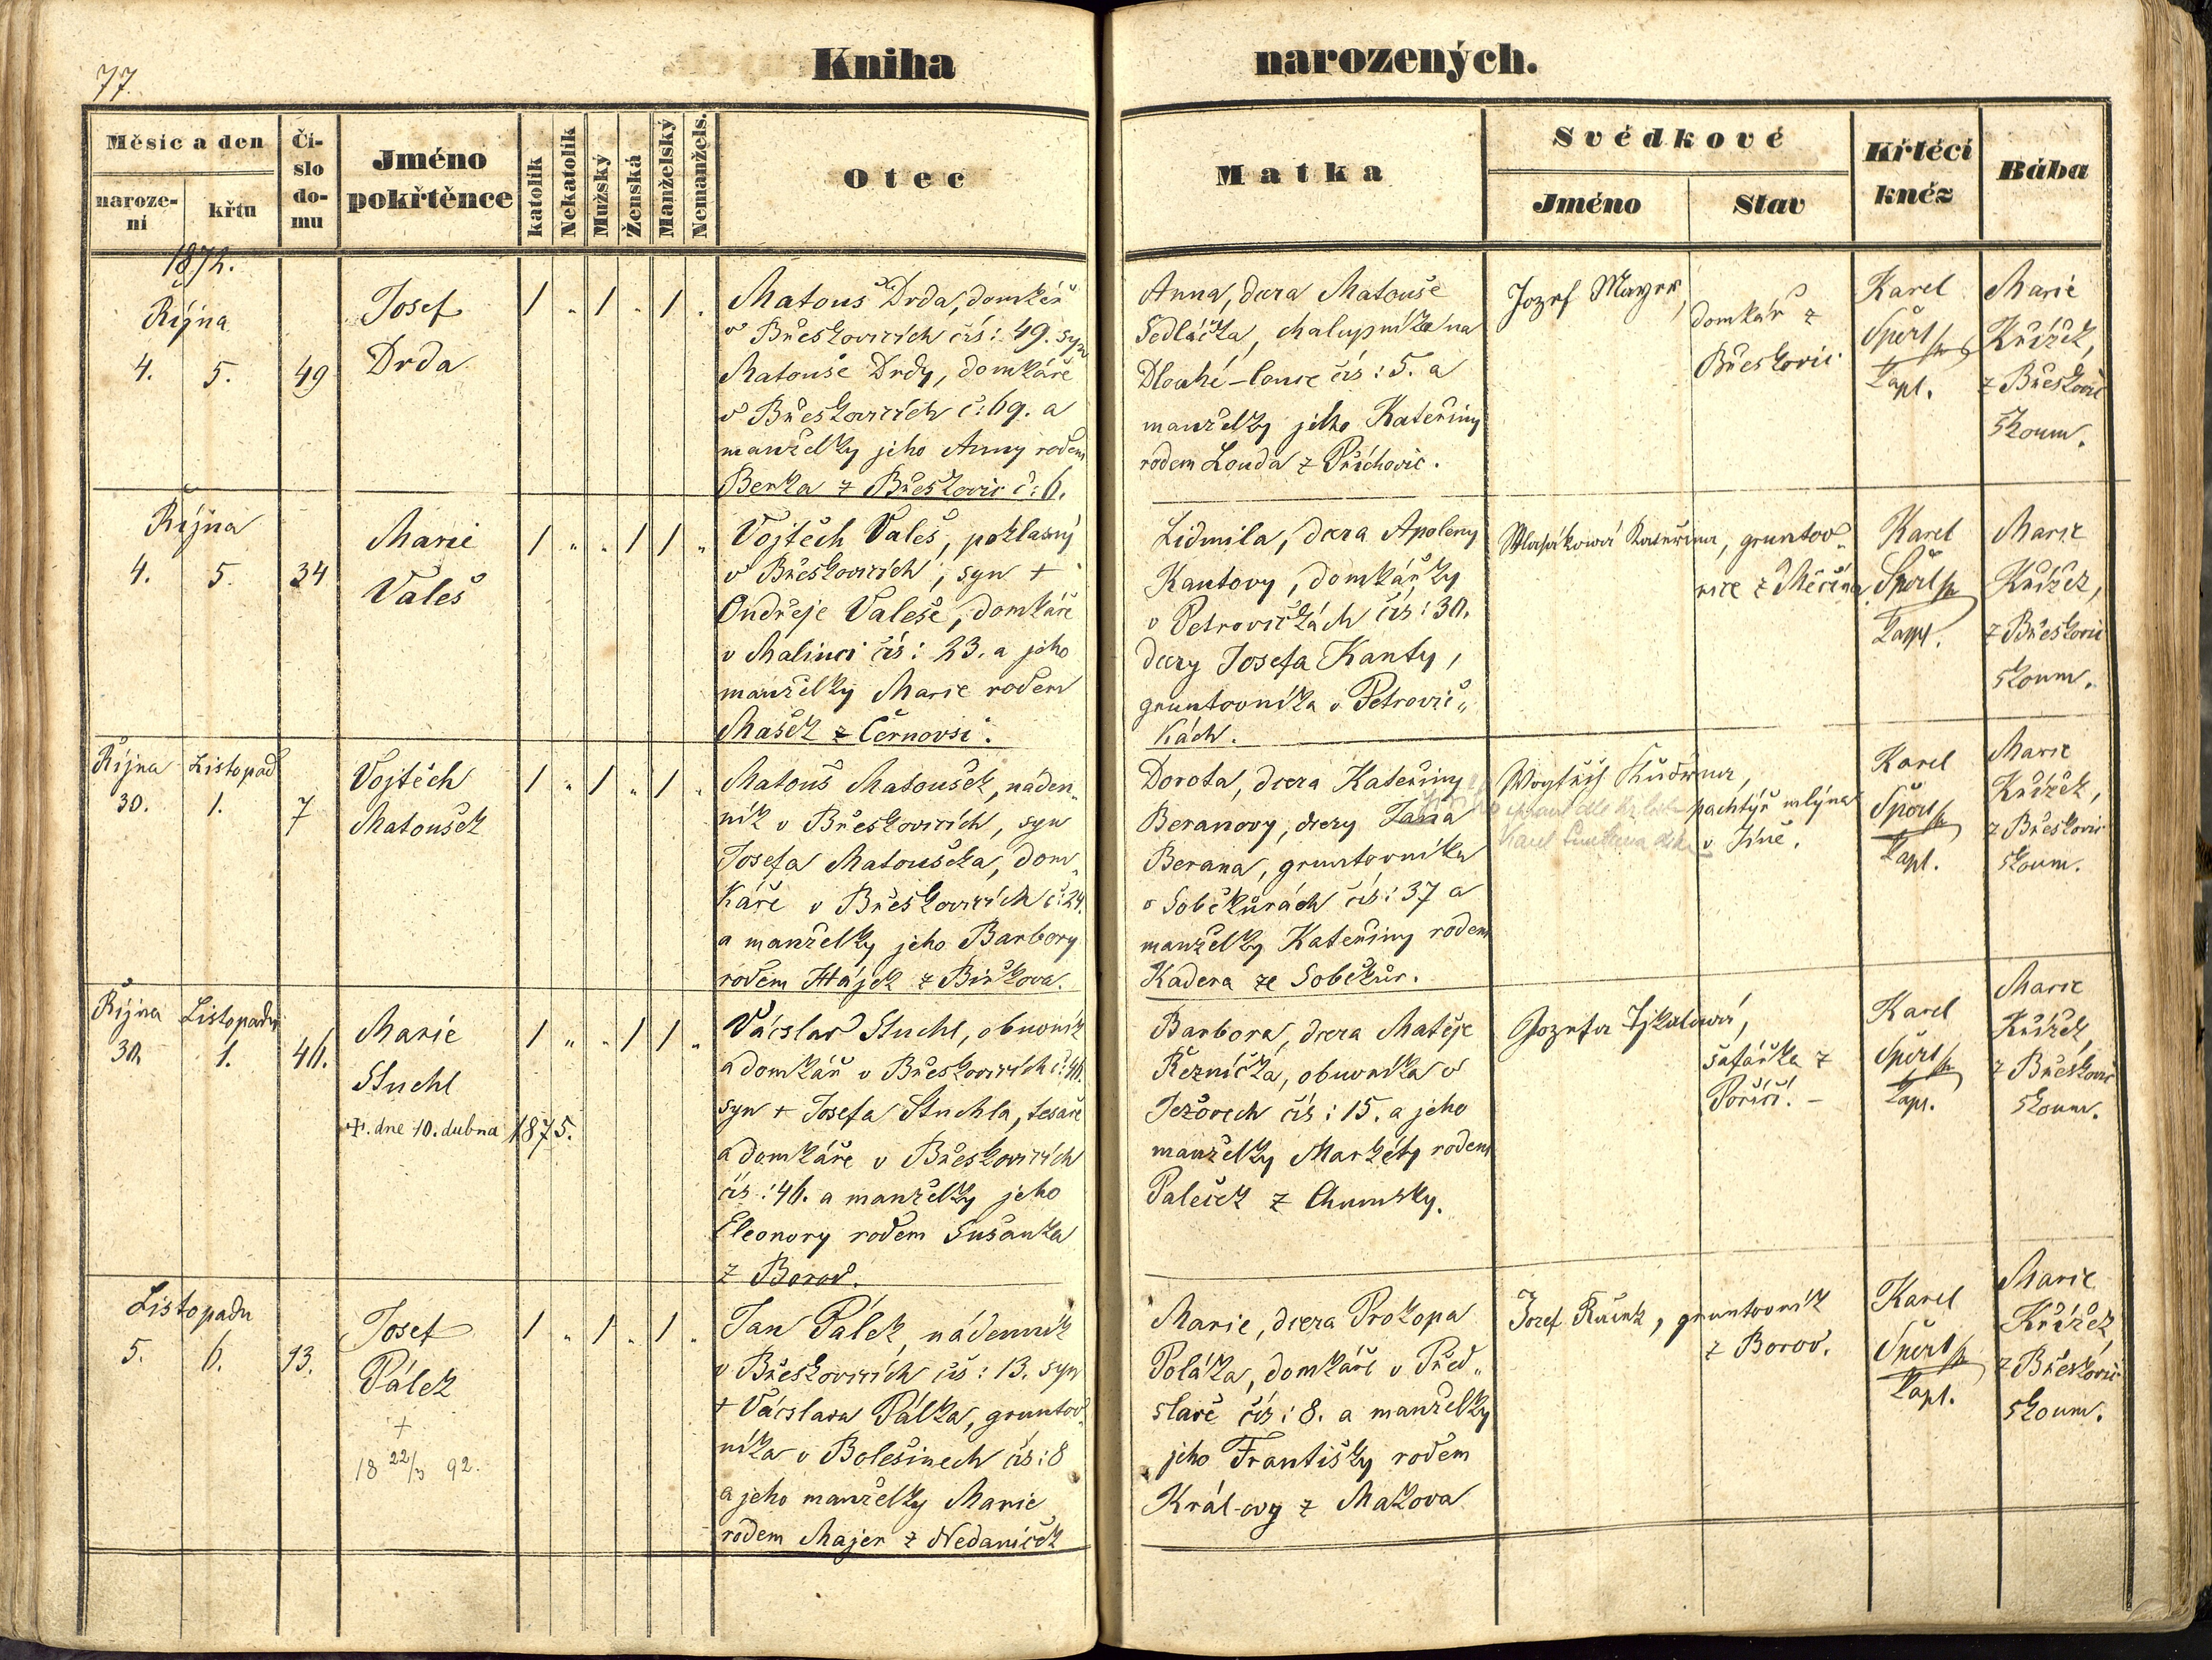 77.
Kniha narozených.
Měsíc a den
narození
křtu
Číslo domu
Jméno pokřtěnce
katolík
Nekatolík
Mužský
Ženská
Manželský
Nemanžels.
Otec
Matka
Svědkové
Jméno
Stav
Křtící kněz
Bába
1872.
Října
4. 5. 49
Josef
Drda
/ „ / „ / „
Matouš Drda, domkář
v Břeskovicích čís: 49. syn
Matouše Drdy, domkáře
v Břeskovicích č: 69. a
manželky jeho Anny rodem
Berka z Břeskovic č: 6.
Anna, dcera Matouše
Sedláčka, chalupníka na
Dlouhé-louce čís: 5. a
manželky jeho Kateřiny
rodem Louda z Příchovic.
Jozef Mayer,
domkář z
Břeskovic
Karel
Šperl
kapl.
Marie
Křížek,
z Břeskovic
zkoum.
Října
4. 5. 34
Marie
Valeš
/ „ „ / / „
Vojtěch Valeš, pohlasný
v Břeskovicích, syn +
Ondřeje Valeše, domkáře
v Malinci čís: 23. a jeho
manželky Marie rodem
Mašek z Černovsi.
Lidmila, dcera Apoleny
Kantovy, domkářky
v Petrovičkách čís: 30.
dcery Josefa Kanty,
gruntovníka v Petrovič„
kách.
Kateřina, gruntov„
nice z Měčína
Karel
Šperl
kapl.
Marie
Křížek,
z Břeskovic
zkoum.
Října Listopad
30. 1. 7
Vojtěch
Matoušek
/ „ / „ / „
Matouš Matoušek, náden„
ník v Břeskovicích, syn
Josefa Matouška, dom„
káře v Břeskovicích č: 24.
a manželky jeho Barbory
rodem Hájek z Birkova.
Dorota, dcera Kateřiny
Beranovy, dcery Jana
Berana, gruntovníka
v Soběkurách čís: 37 a
manželky Kateřiny rodem
Kadera ze Soběkur.
Wogtěch Kudrna,
pachtýř mlýna
v Jíně.
Karel
Šperl
kapl.
Marie
Křížek,
z Břeskovic
zkoum.
Října Listopadu
30. 1. 46.
Marie
Stuchl
+. dne 10. dubna 1875.
/ „ „ / / „
Vácslav Stuchl, obuvník
a domkář v Břeskovicích č: 46.
syn + Josefa Stuchla, tesaře
a domkáře v Břeskovicích
čís: 46. a manželky jeho
Eleonory rodem Sušanka
z Borov.
Barbora, dcera Matěje
Řezníčka, obuvníka v
Ježovech čís: 15. a jeho
manželky Markéty rodem
Paleček z Chumsky.
Jozefa
šafářka z
Poříčí. –
Karel
Šperl
kapl.
Marie
Křížek,
z Břeskovic
zkoum.
Listopadu
5. 6. 13.
Josef
Pálek
+
18 22/3 92.
/ „ / „ / „
Jan Pálek, nádenník
v Břeskovicích čís: 13. syn
+ Vácslava Pálka, gruntov„
níka v Bolešinech čís: 8
a jeho manželky Marie
rodem Majer z Nedaniček
Marie, dcera Prokopa
Poláka, domkáře v Před„
slavě čís: 8. a manželky
jeho Františky rodem
Král-ovy z Makova
Jozef, gruntovník
z Borov.
Karel
Šperl
kapl.
Marie
Křížek,
z Břeskovic
zkoum.